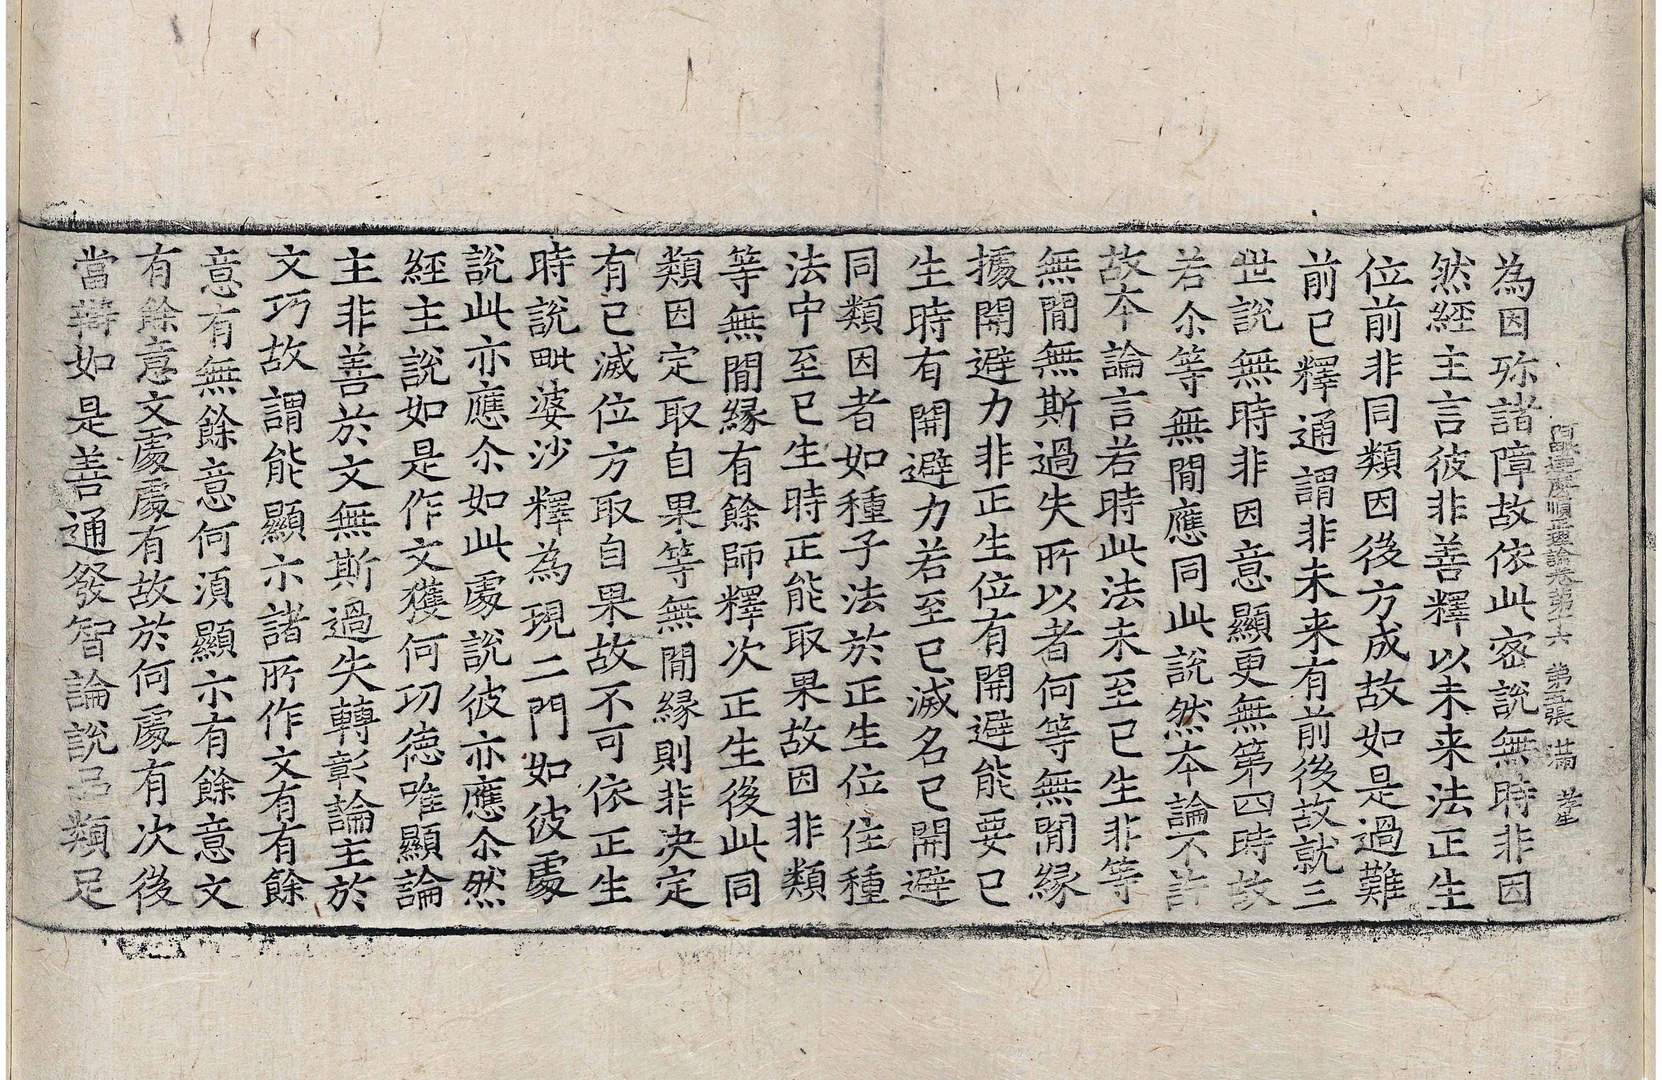 阿毗達磨順正理論卷第十六 第五張 滿
為因弥諸障故依此密說無時非因
然經主言彼非善釋以未来法正生
位前非同類因後方成故如是過難
前已釋通謂非未来有前後故就三
世說無時非因意顯更無第四時故
若尒等無間應同此說然本論不許
故本論言若時此法未至已生非等
無間無斯過失所以者何等無間緣
據開避力非正生位有開避能要已
生時有開避力若至已滅名已開避
同類因者如種子法於正生位住種
法中至已生時正能取果故因非類
等無間緣有餘師釋次正生後此同
類因定取自果等無間緣則非決定
有已滅位方取自果故不可依正生
時說毗婆沙釋為現二門如彼處
說此亦應尒如此處說彼亦應尒然
經主說如是作文獲何功德唯顯論
主非善於文無斯過失轉彰論主於
文巧故謂能顯示諸所作文有有餘
意有無餘意何須顯示有餘意文
有餘意文處處有故於何處有次後
當辯如是善通發智論說品類足